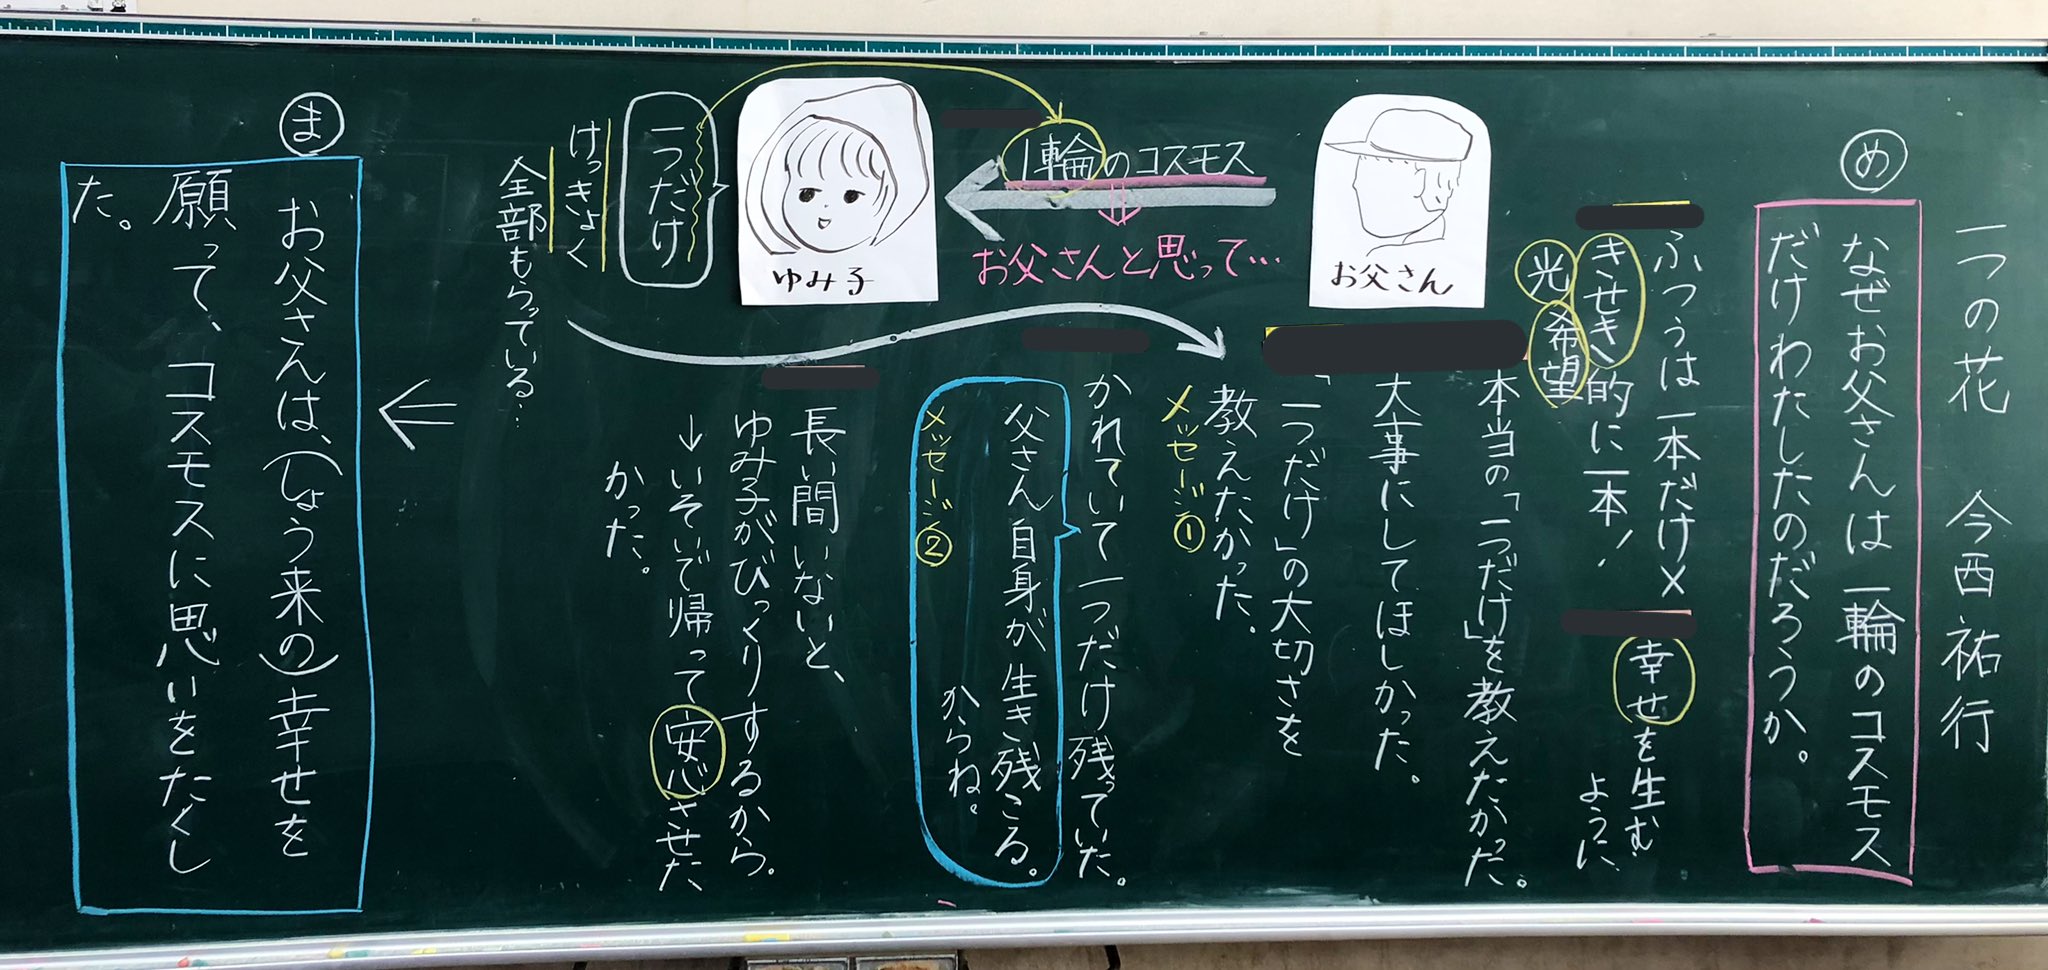 一つの花　今西祐行
め
なぜお父さんは一輪のコスモス
だけわたしたのだろうか。
ふつうは一本だけ×
きせき的に一本！
光
希望
幸せを生む
ように
お父さん
本当の「一つだけ」を教えたかった。
大事にしてほしかった。
「一つだけ」の大切さを
教えたかった。
メッセージ①
1輪のコスモス
お父さんと思って…
かれていて一つだけ残っていた。
父さん自身が生き残こる。
からね。
メッセージ②
ゆみ子
長い間いないと、
ゆみ子がびっくりするから。
↓いそいで帰って安心させた
かった。
一つだけ
けっきょく
全部もらっている…
ま
お父さんは、(しょう来の)幸せを
願って、コスモスに思いをたくし
た。